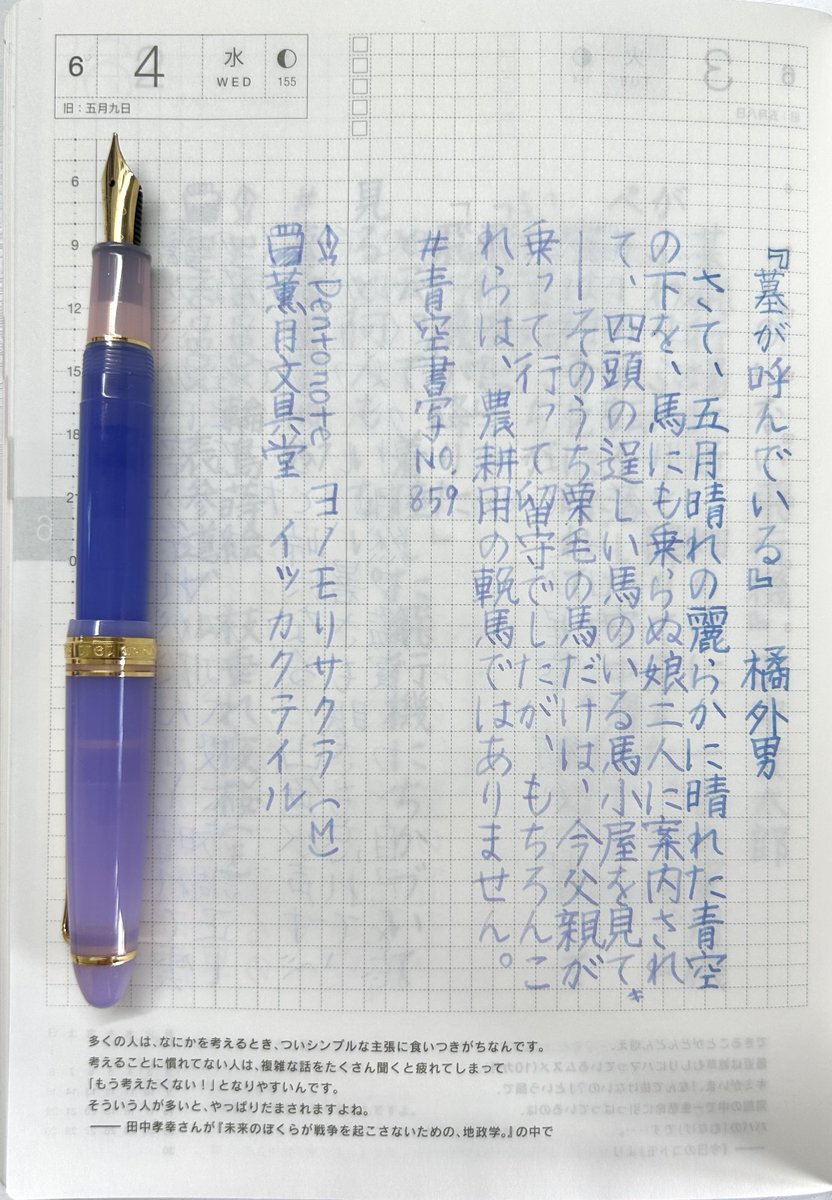 6 4 水 WED 155
旧：五月九日
6
9
12
15
18
21
0
6
『墓が呼んでいる』 橘外男
さて、五月晴れの麗らかに晴れた青空
の下を、馬にも乗らぬ娘二人に案内され
て、四頭の逞しい馬のいる馬小屋を見て
――そのうち栗毛の馬だけは、今父親が
乗って行って留守でしたが、もちろんこ
れらは、農耕用の輓馬ではありません。
#青空書写 NO.859
Pentonote ヨノモリサクラ(M)
薫月文具堂 イッカクテイル
多くの人は、なにかを考えるとき、ついシンプルな主張に食いつきがちなんです。
考えることに慣れてない人は、複雑な話をたくさん聞くと疲れてしまって
「もう考えたくない！」となりやすいんです。
そういう人が多いと、やっぱりだまされますよね。
―― 田中孝幸さんが『未来のぼくらが戦争を起こさないための、地政学。』の中で